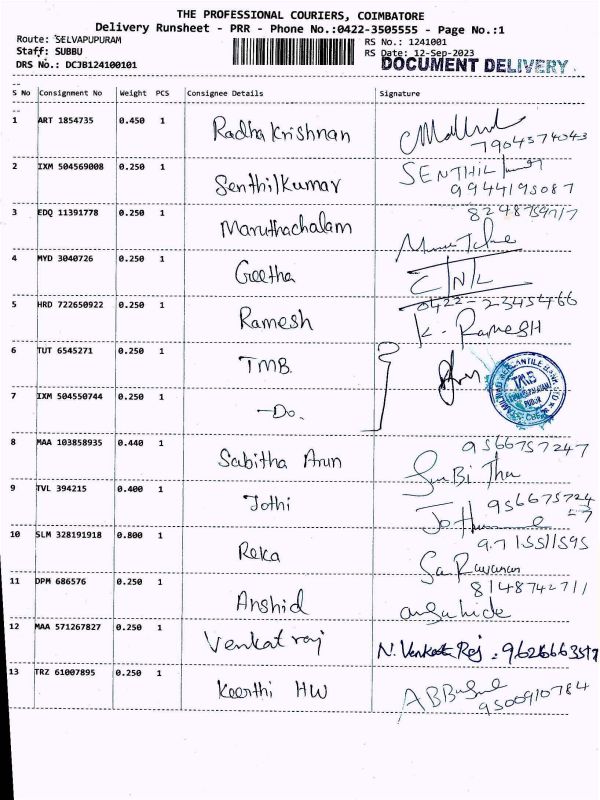 THE PROFESSIONAL COURIERS, COIMBATORE
Delivery Runsheet - PRR - Phone No.:0422-3505555 - Page No.:1
Route: SELVAPUPURAM
RS No.: 1241001
Staff: SUBBU
RS Date: 12-Sep-2023
DRS No.: DCJB124100101
DOCUMENT DELIVERY
S No Consignment No Weight PCS Consignee Details Signature
1 ART 1854735 0.450 1 Radha Krishnan
7904574043
2 IXM 504569008 0.250 1 Senthilkumar SENTHIL
9944195087
3 EDQ 11391778 0.250 1 Maruthachalam
4 MYD 3040726 0.250 1 Geetha C/N/L
0422-2345466
5 HRD 722650922 0.250 1 Ramesh K. RAMESH
6 TUT 6545271 0.250 1 TMB
7 IXM 504550744 0.250 1 -Do.
8 MAA 103858935 0.440 1 Sabitha Arun 9566757247
9 TVL 394215 0.400 1 Jothi
10 SLM 328191918 0.800 1 Reka 9715511595
Saravanan
11 DPM 686576 0.250 1 Arshid 8148742711
12 MAA 571267827 0.250 1 Venkat raj N. Venkat Raj.
13 TRZ 61007895 0.250 1 Keerthi HW
9500910784